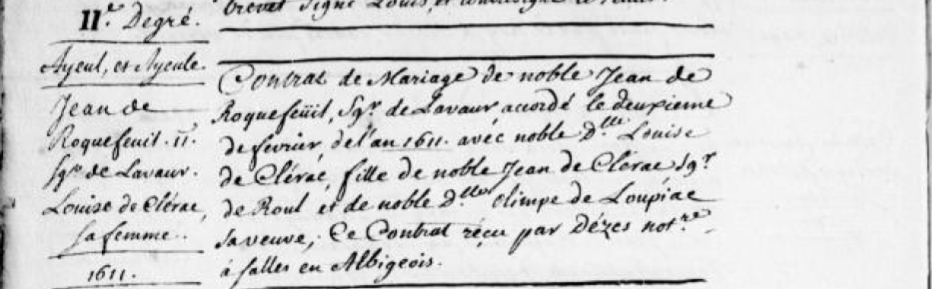 brevet signé Louis, et
II.e Degré.
Ayeul, et Ayeule.
Jean de
Roquefeuil. II.
Sgr. de Lavaur.
Louise de Clérac,
sa femme.
1611.
Contrat de Mariage de noble Jean de
Roquefeüil, Sgr. de Lavaur accordé le deuxieme
de fevrier, de l'an 1611. avec noble D.lle Louise
de Clérac, fille de noble Jean de Clérac Sgr.
de Roul et de noble D.lle Olimpe de Loupiac
sa veuve; Ce Contrat réçu par Dézes not.re
à Salles en Albigeois.